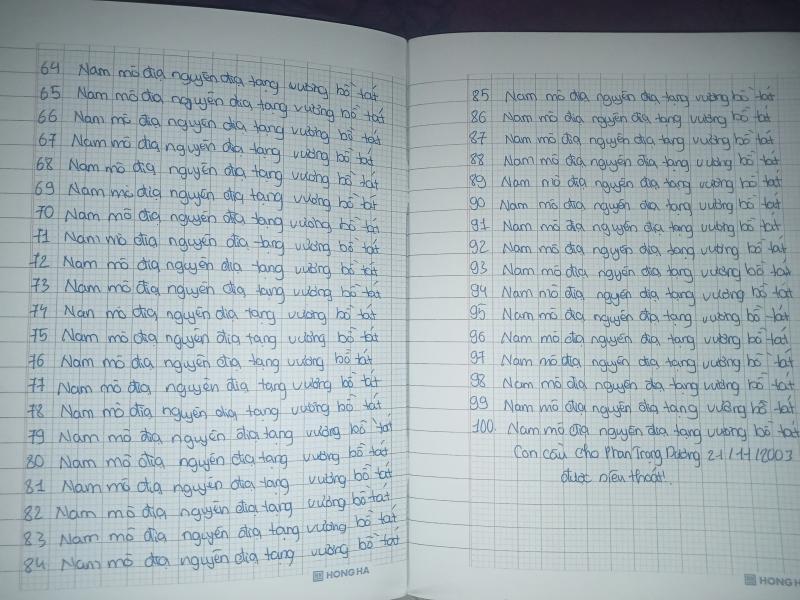 64 Nam mô địa nguyên địa tạng vương bồ tát
65 Nam mô địa nguyên địa tạng vương bồ tát
66 Nam mô địa nguyên địa tạng vương bồ tát
67 Nam mô địa nguyên địa tạng vương bồ tát
68 Nam mô địa nguyên địa tạng vương bồ tát
69 Nam mô địa nguyên địa tạng vương bồ tát
70 Nam mô địa nguyên địa tạng vương bồ tát
71 Nam mô địa nguyên địa tạng vương bồ tát
72 Nam mô địa nguyên địa tạng vương bồ tát
73 Nam mô địa nguyên địa tạng vương bồ tát
74 Nan mô địa nguyên địa tạng vương bồ tát
75 Nam mô địa nguyên địa tạng vương bồ tát
76 Nam mô địa nguyên địa tạng vương bồ tát
77 Nam mô địa nguyên địa tạng vương bồ tát
78 Nam mô địa nguyên địa tạng vương bồ tát
79 Nam mô địa nguyên địa tạng vương bồ tát
80 Nam mô địa nguyên địa tạng vương bồ tát
81 Nam mô địa nguyên địa tạng vương bồ tát
82 Nam mô địa nguyên địa tạng vương bồ tát
83 Nam mô địa nguyên địa tạng vương bồ tát
84 Nam mô địa nguyên địa tạng vương bồ tát
HONG HA
85 Nam mô địa nguyên địa tạng vương bồ tát
86 Nam mô địa nguyên địa tạng vương bồ tát
87 Nam mô địa nguyên địa tạng vương bồ tát
88 Nam mô địa nguyên địa tạng vương bồ tát
89 Nam mô địa nguyên địa tạng vương bồ tát
90 Nam mô địa nguyên địa tạng vương bồ tát
91 Nam mô địa nguyên địa tạng vương bồ tát
92 Nam mô địa nguyên địa tạng vương bồ tát
93 Nam mô địa nguyên địa tạng vương bồ tát
94 Nam mô địa nguyên địa tạng vương bồ tát
95 Nam mô địa nguyên địa tạng vương bồ tát
96 Nam mô địa nguyên địa tạng vương bồ tát
97 Nam mô địa nguyên địa tạng vương bồ tát
98 Nam mô địa nguyên địa tạng vương bồ tát
99 Nam mô địa nguyên địa tạng vương bồ tát
100. Nam mô địa nguyên địa tạng vương bồ tát
Con cầu cho Phan Trọng Dương 21/11/2003
được siêu thoát!
HONG H